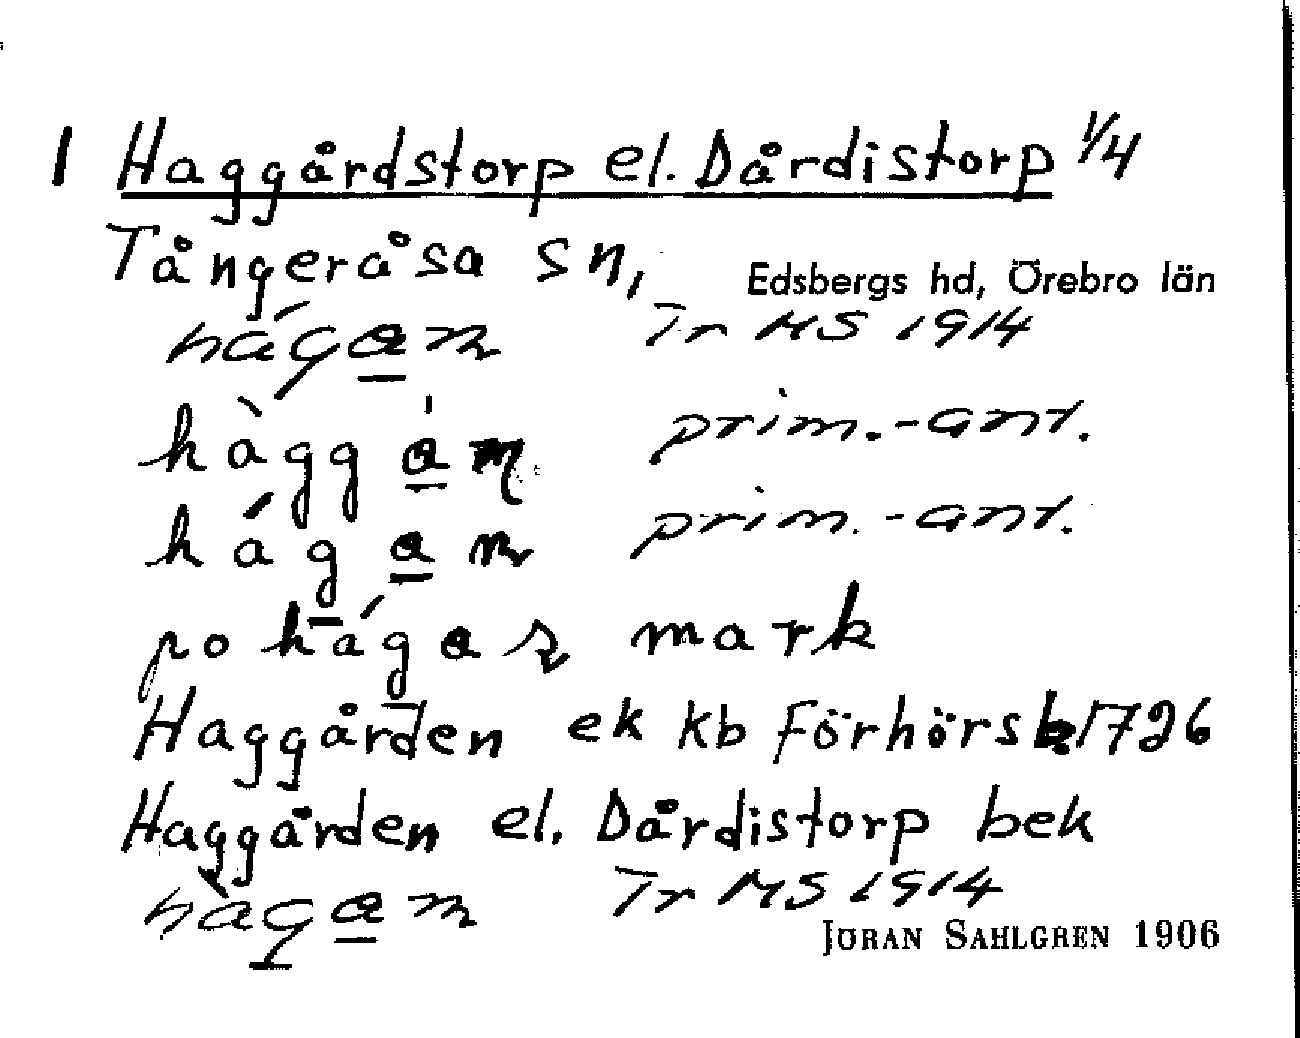 1 Haggårdstorp el. Dårdistorp 1/4
Tångeråsa sn, Edsbergs hd, Örebro län
hágan Tr MS 1914
hàggán prim.-ant.
hágan prim.-ant.
po hágaz mark
Haggården ek kb Förhörsb 1726
Haggården el. Dårdistorp bek
hàgan Tr MS 1914
JÖRAN SAHLGREN 1906